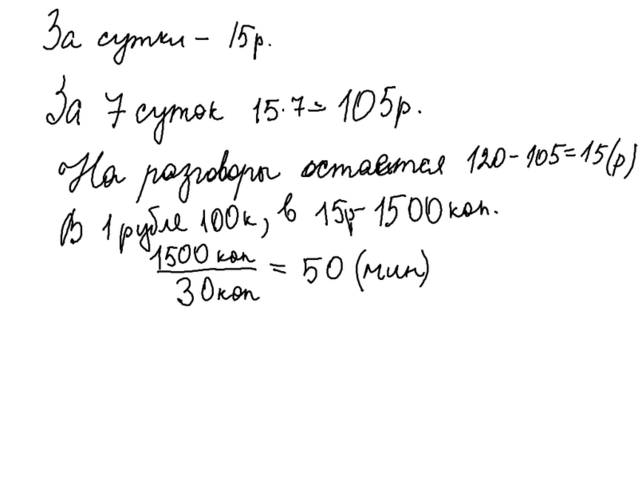 За сутки - 15р.
За 7 суток 15·7= 105р.
На разговоры остается 120-105=15(р)
В 1 рубле 100к, в 15р-1500коп.
1500 коп
30коп = 50 (мин)